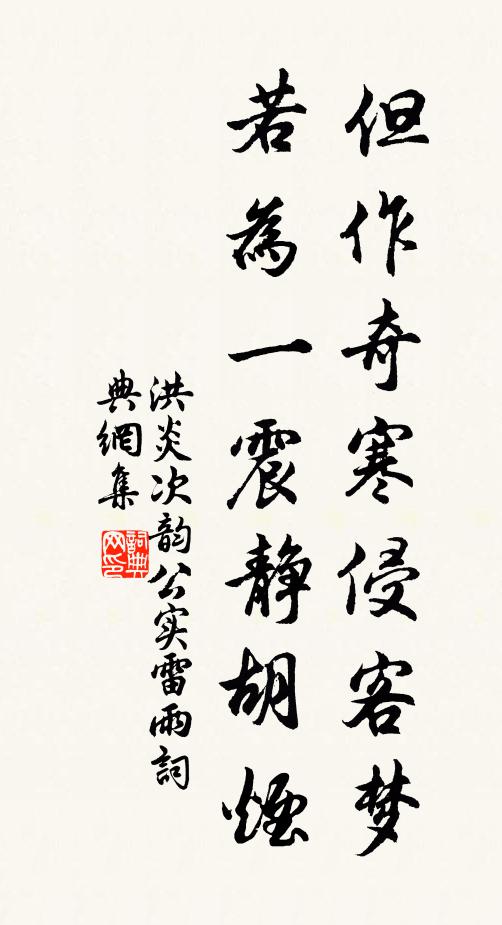 但作奇寒侵客梦
若為一震静胡煙
洪炎次韵公实雷雨詞
典網集
詞典
网印